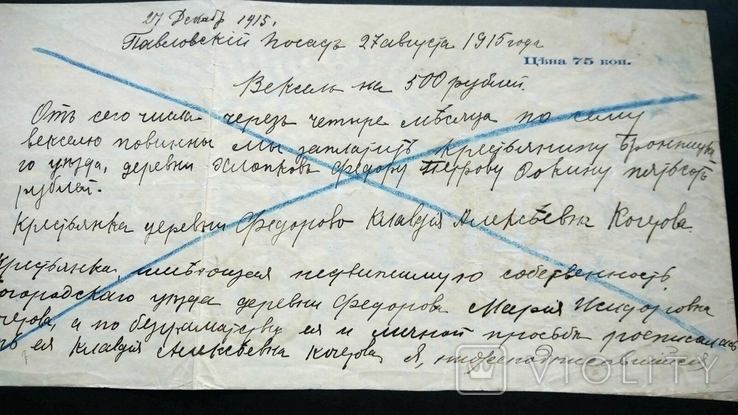 27 Декабр 1915.
Павловскій Посадъ 27 августа 1915 года
Цѣна 75 коп.
Вексель на 500 рублей.
Отъ сего числа черезъ четыре мѣсяца по сему
векселю повинны мы заплатить крестьянину Бронницка
го уѣзда, деревни Хлопкова Федору Петрову Фокину пятьсотъ
рублей.
Крестьянка деревни Федорово Клавдія Алексѣевна Кочерова
крестьянка, имѣющая недвижимую собственность,
Богородскаго уѣзда деревни Федорова Марія Исидоровна
Кочерова, а по безграмотству ея и личной просьбѣ росписалась
ея Клавдія Алексѣевна Кочерова Я, нижеподписавшійся
VIOLITY